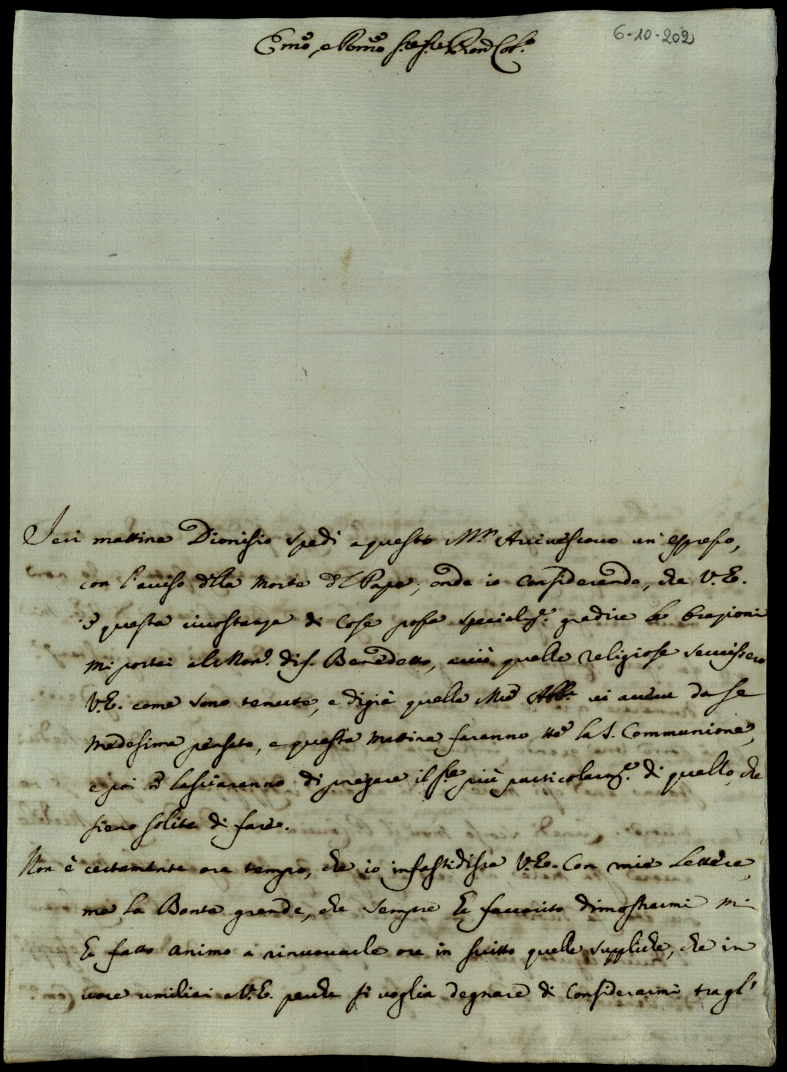 6-10-202
Em̃o, e Rm̃o Sig.re Sig.re Pron Col.mo
Ieri mattina Dionisio spedì a questo Mr. Arcivescovo un'espresso,
con l'aviso d'lla morte d'l Papa, onde io considerando, che V.E.
questa circostanza di Cose possa specialm.te gradire le Orazioni
mi portai al Mon.ro di S. Benedetto, acciò quelle religiose servissero
V.E. come sono tenute, e digià quella M.re Abb.a vi aveva da se
medesima pensato, e questa mattina faranno tt.e la S. Communione,
e poi ñ lascieranno di pregare il Sig.re più particolarm.te di quello, che
sieno solite di fare.
Non è certamente ora tempo, che io infastidissa V.E. con mie Lettere,
ma la Bontà grande, che sempre ha favorito dimostrarmi mi
ha fatto animo a rinnovarle ora in scritto quelle suppliche, che in
voce umiliai a V.E. perche si voglia degnare di considerarmi tragl'